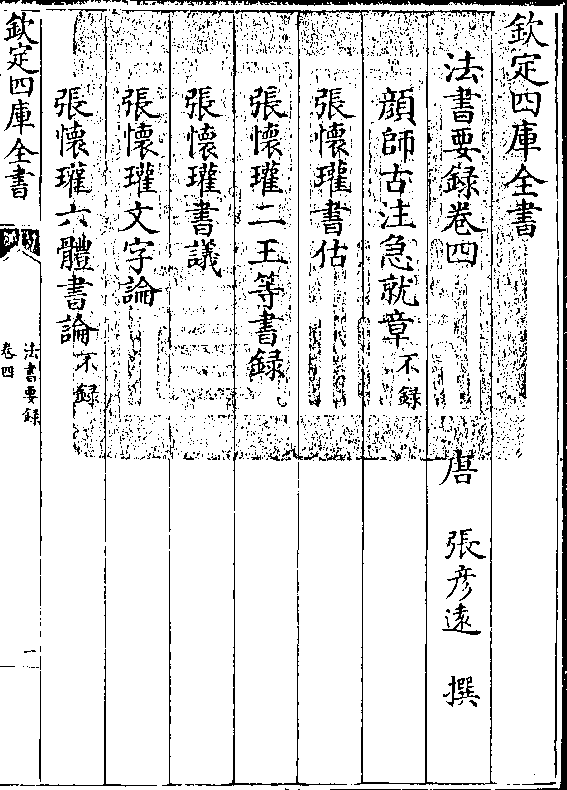 欽定四庫全書
法書要録卷四
唐 張彦遠 撰
顔師古注急就章不録
張懷瓘書估
張懷瓘二王等書録
張懷瓘書議
張懷瓘文字論
張懷瓘六體書論不録
欽定四庫全書
法書要録
卷四
一